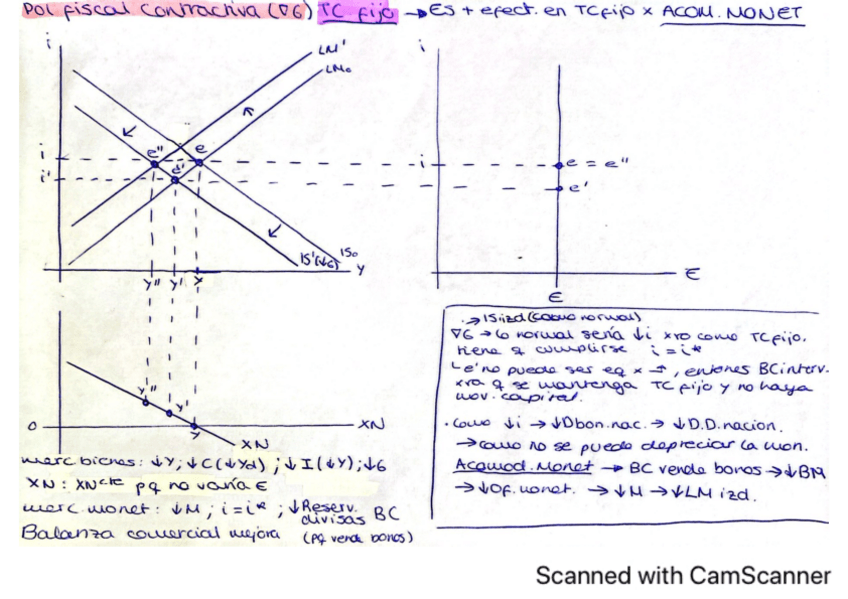 Pol fiscal contractiva (∇G) TC fijo → ES + efect. en TC fijo x ACOM. MONET
i
LM'
LM₀
i
e''
e
e'
i'
IS'(↓G)
IS₀
Y
Y''
Y'
Y
i
i
e = e''
e'
E
E
Y''
Y'
Y
0
XN
XN
merc bienes: ↓Y; ↓C(↓Yd) ; ↓I(↓Y); ↓G
XN: XN cte pq no varía E
merc monet: ↓M; i=i*; ↓Reserv. divisas BC
Balanza comercial mejora (pq vende bonos)
→ IS izd (como normal)
∇G → lo normal sería ↓i xro como TC fijo.
tiene q cumplirse i = i*
↳ e' no puede ser eq x →, entonces BC interv.
xra q se mantenga TC fijo y no haya
mov. capital.
· Como ↓i → ↓D bon. nac. → ↓D.D. nacion.
→ como no se puede depreciar la mon.
Acomod. Monet → BC vende bonos → ↓BM
→ ↓Of. monet. → ↓M → ↓LM izd.
Scanned with CamScanner